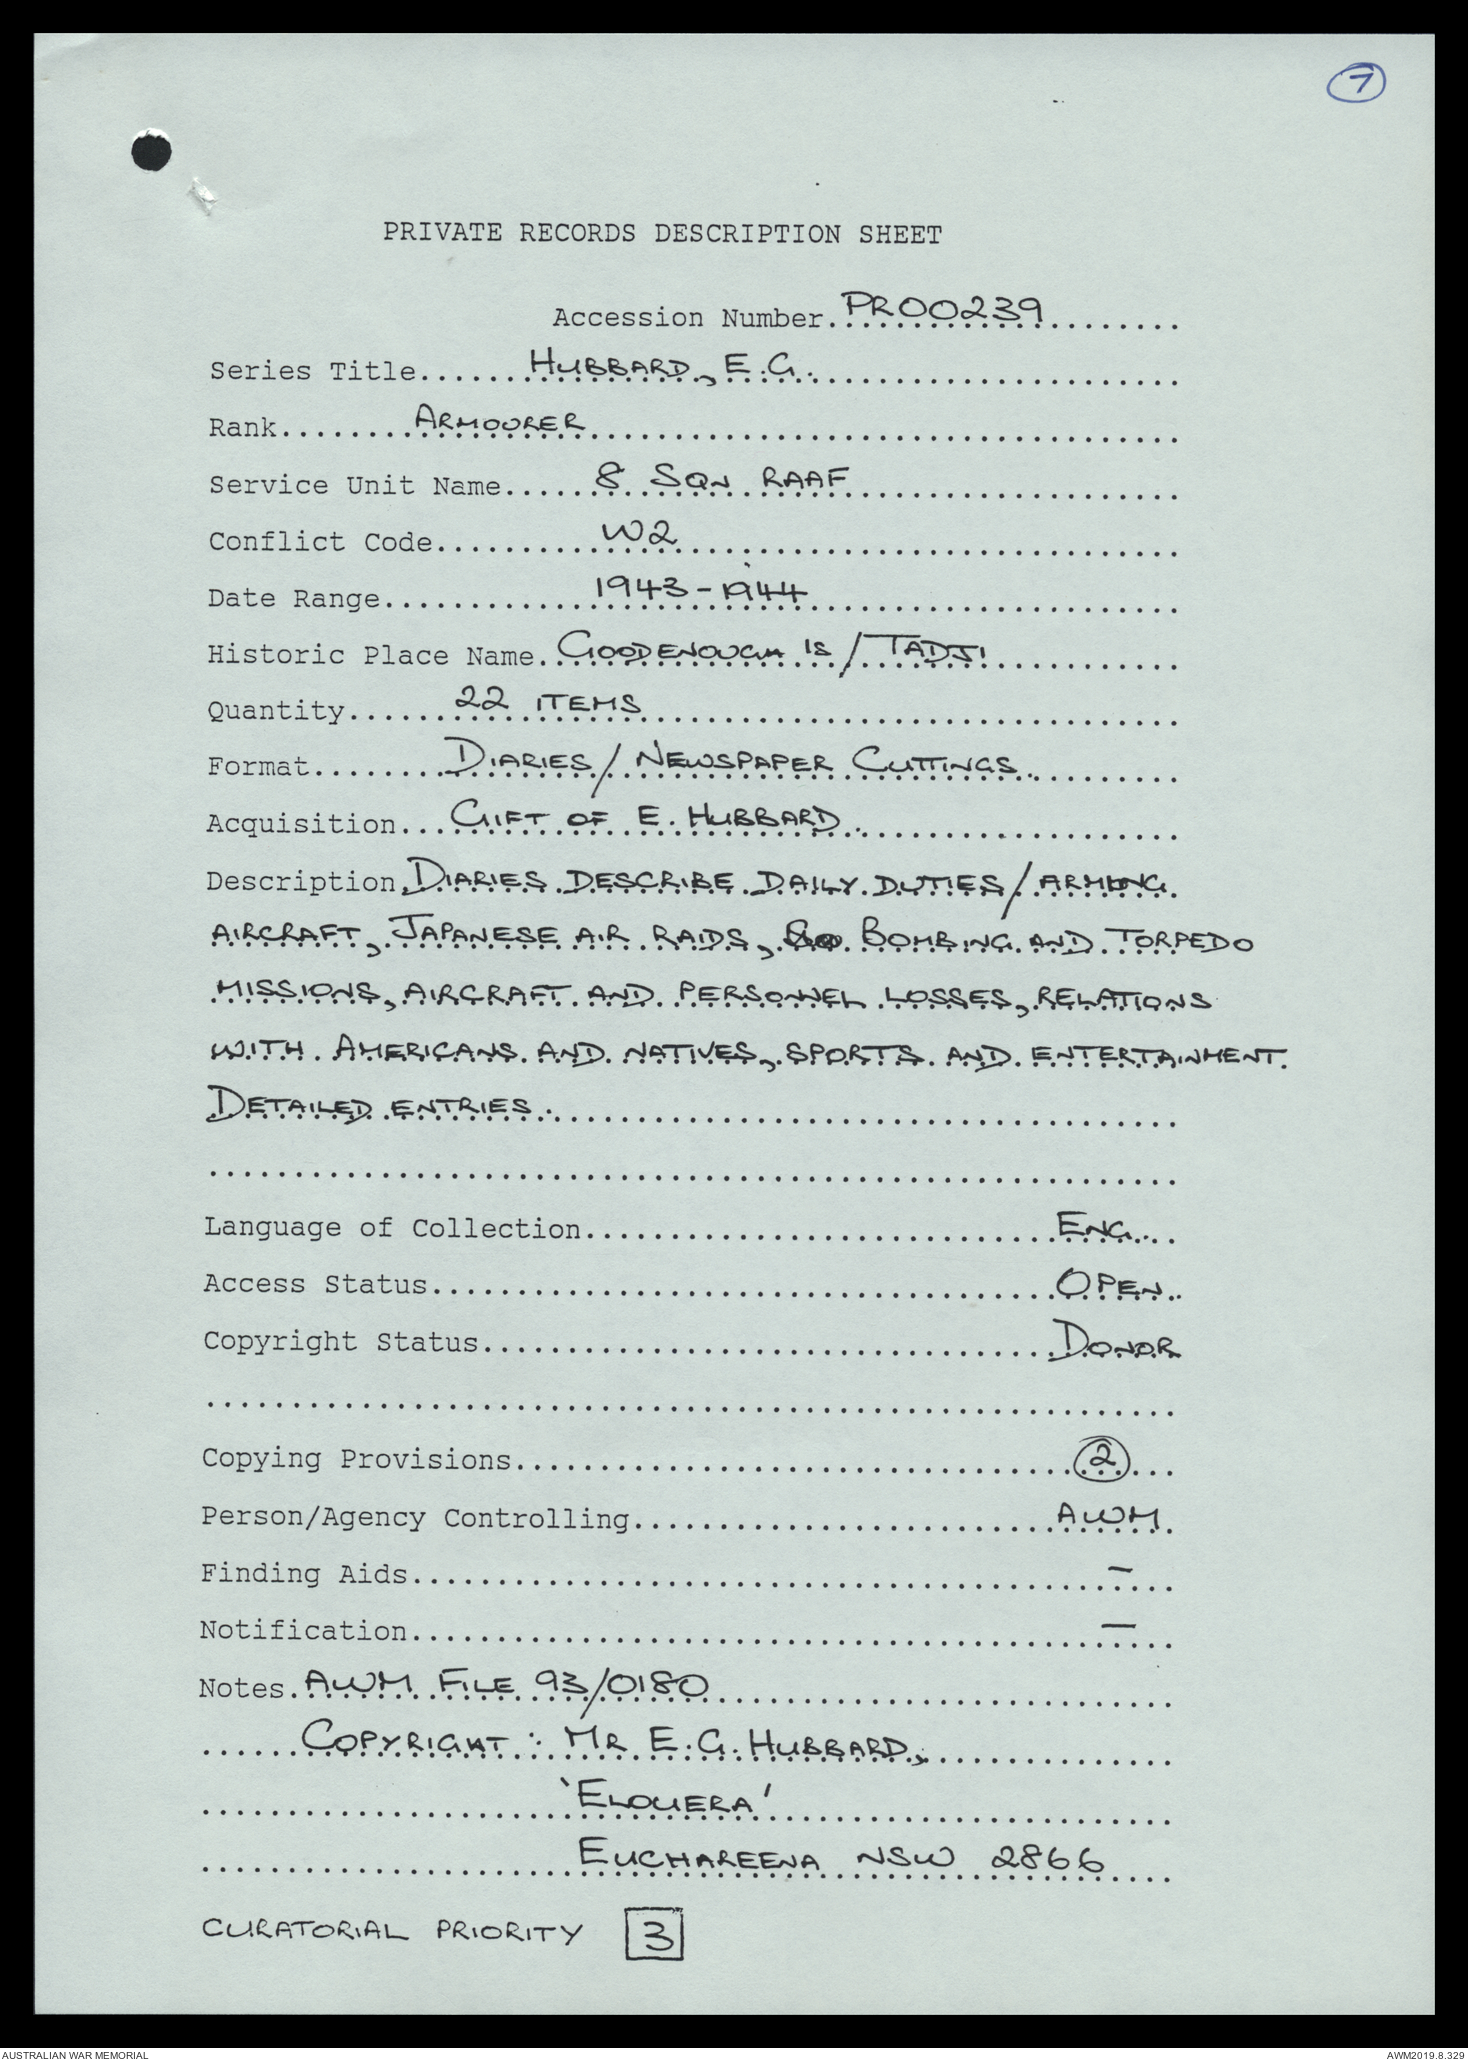 7
PRIVATE RECORDS DESCRIPTION SHEET
Accession Number. PR00239
Series Title...... HUBBARD, E.G.
Rank........ ARMOURER
Service Unit Name..... 8 SQN RAAF
Conflict Code.......... W2
Date Range............. 1943-1944
Historic Place Name. GOODENOUGH IS / TADJI
Quantity...... 22 ITEMS
Format........ DIARIES / NEWSPAPER CUTTINGS
Acquisition... GIFT OF E. HUBBARD
Description. DIARIES DESCRIBE DAILY DUTIES / ARMING
AIRCRAFT, JAPANESE AIR RAIDS, BOMBING AND TORPEDO
MISSIONS, AIRCRAFT AND PERSONNEL LOSSES, RELATIONS
WITH AMERICANS AND NATIVES, SPORTS AND ENTERTAINMENT.
DETAILED ENTRIES.
Language of Collection........................... ENG.
Access Status.................................... OPEN.
Copyright Status................................. DONOR
Copying Provisions............................... 2
Person/Agency Controlling........................ AWM
Finding Aids..................................... —
Notification..................................... —
Notes. AWM FILE 93/0180
COPYRIGHT: MR E.G. HUBBARD,
'ELOUERA'
EUCHAREENA NSW 2866
CURATORIAL PRIORITY 3
AUSTRALIAN WAR MEMORIAL AWM2019.8.329